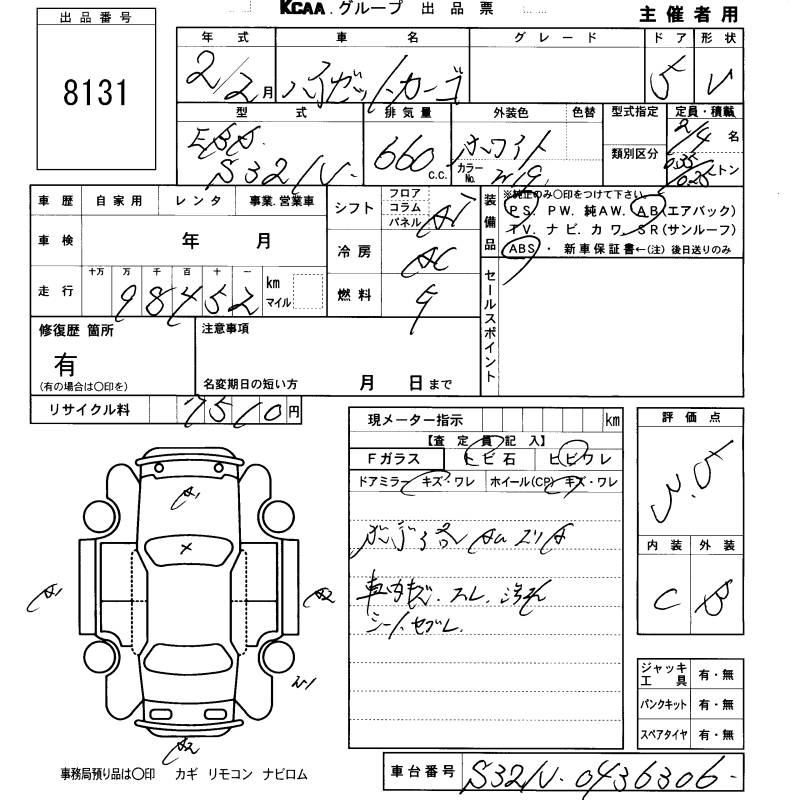 KCAA.グループ 出品票
主催者用
出品番号
8131
年式 車名 グレード ドア 形状
2/2月 ハイゼットカーゴ 5 V
型式 排気量 外装色 色替 型式指定 定員・積載
EBD 660 c.c. ホワイト 2/4名
S321V カラーNo. W19 類別区分 0.35/0.25トン
車歴 自家用 レンタ 事業.営業車
シフト フロア コラム パネル AT
装備品 ※純正のみ〇印をつけて下さい
PS.PW.純AW.AB(エアバック)
TV.ナビ.カワ.SR(サンルーフ)
ABS・新車保証書←(注)後日送りのみ
車検 年 月
冷房 AC
走行 十万 万 千 百 十 一
98452 km マイル
燃料 G
セールスポイント
修復歴 箇所
有
(有の場合は〇印を)
注意事項
名変期日の短い方 月 日まで
リサイクル料 7510円
現メーター指示 km
【査定員記入】
Fガラス トビ石 ヒビワレ
ドアミラー キズ・ワレ ホイール(CP) キズ・ワレ
車内キズ.スレ.汚れ
シートセブレ
評価点
3.5
内装 外装
C B
A1
X
A1
A2
A2
ジャッキ工具 有・無
パンクキット 有・無
スペアタイヤ 有・無
事務局預り品は〇印 カギ リモコン ナビロム
車台番号 S321V-0436306-